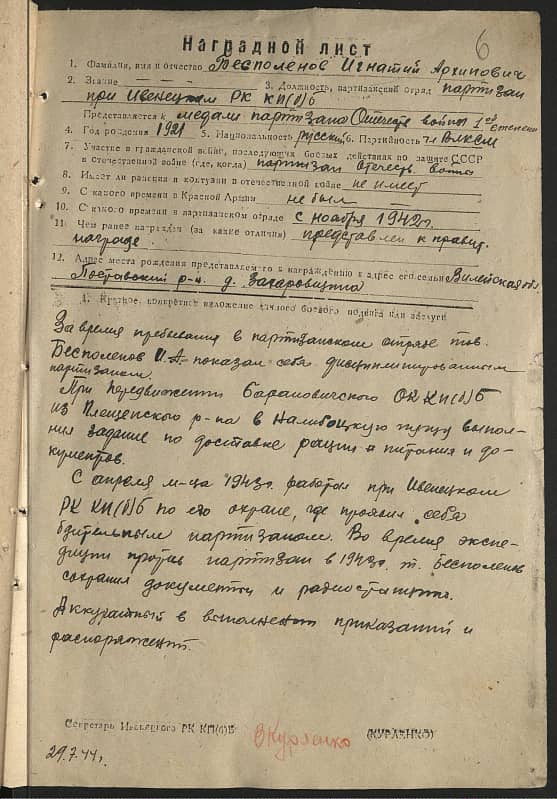 6
Наградной лист
1. Фамилия, имя и отчество Бесполенов Игнатий Архипович
2. Звание — — — 3. Должность, партизанский отряд партизан
при Ивенецком РК КП(б)Б
Представляется к медали партизана Отечеств войны 1ой степени
4. Год рождения 1921 5. Национальность русский 6. Партийность чл ВЛКСМ
7. Участие в гражданской войне, последующих боевых действиях по защите СССР
и отечественной войне (где, когда) партизан отечеств. войны
8. Имеет ли ранения и контузии в отечественной войне не имеет
9. С какого времени в Красной Армии не был
10. С какого времени в партизанском отряде с ноября 1942г.
11. Чем ранее награжден (за какие отличия) представлен к правит.
награде
12. Адрес места рождения представляемого к награждению и адрес его семьи Вилейская обл.
Поставский р-н д. Захаровщина
1. Краткое, конкретное изложение личного боевого подвига или заслуги
За время пребывания в партизанском отряде тов.
Бесполенов И.А. показал себя дисциплинированным
партизаном.
При передвижении Барановичского ОК КП(б)Б
из Плещенского р-на в Налибоцкую пущу выпол-
нил задание по доставке рации и питания и до-
кументов.
С апреля м-ца 1943г. работал при Ивенецком
РК КП(б)Б по его охране, где проявил себя
бдительным партизаном. Во время экспе-
диции против партизан в 1943г. т. Бесполенов
сохранил документы и радиостанцию.
Аккуратный в выполнении приказаний и
распоряжений.
Секретарь Ивенецкого РК КП(б)Б ВКурленко (КУРЛЕНКО)
29.7.44г.